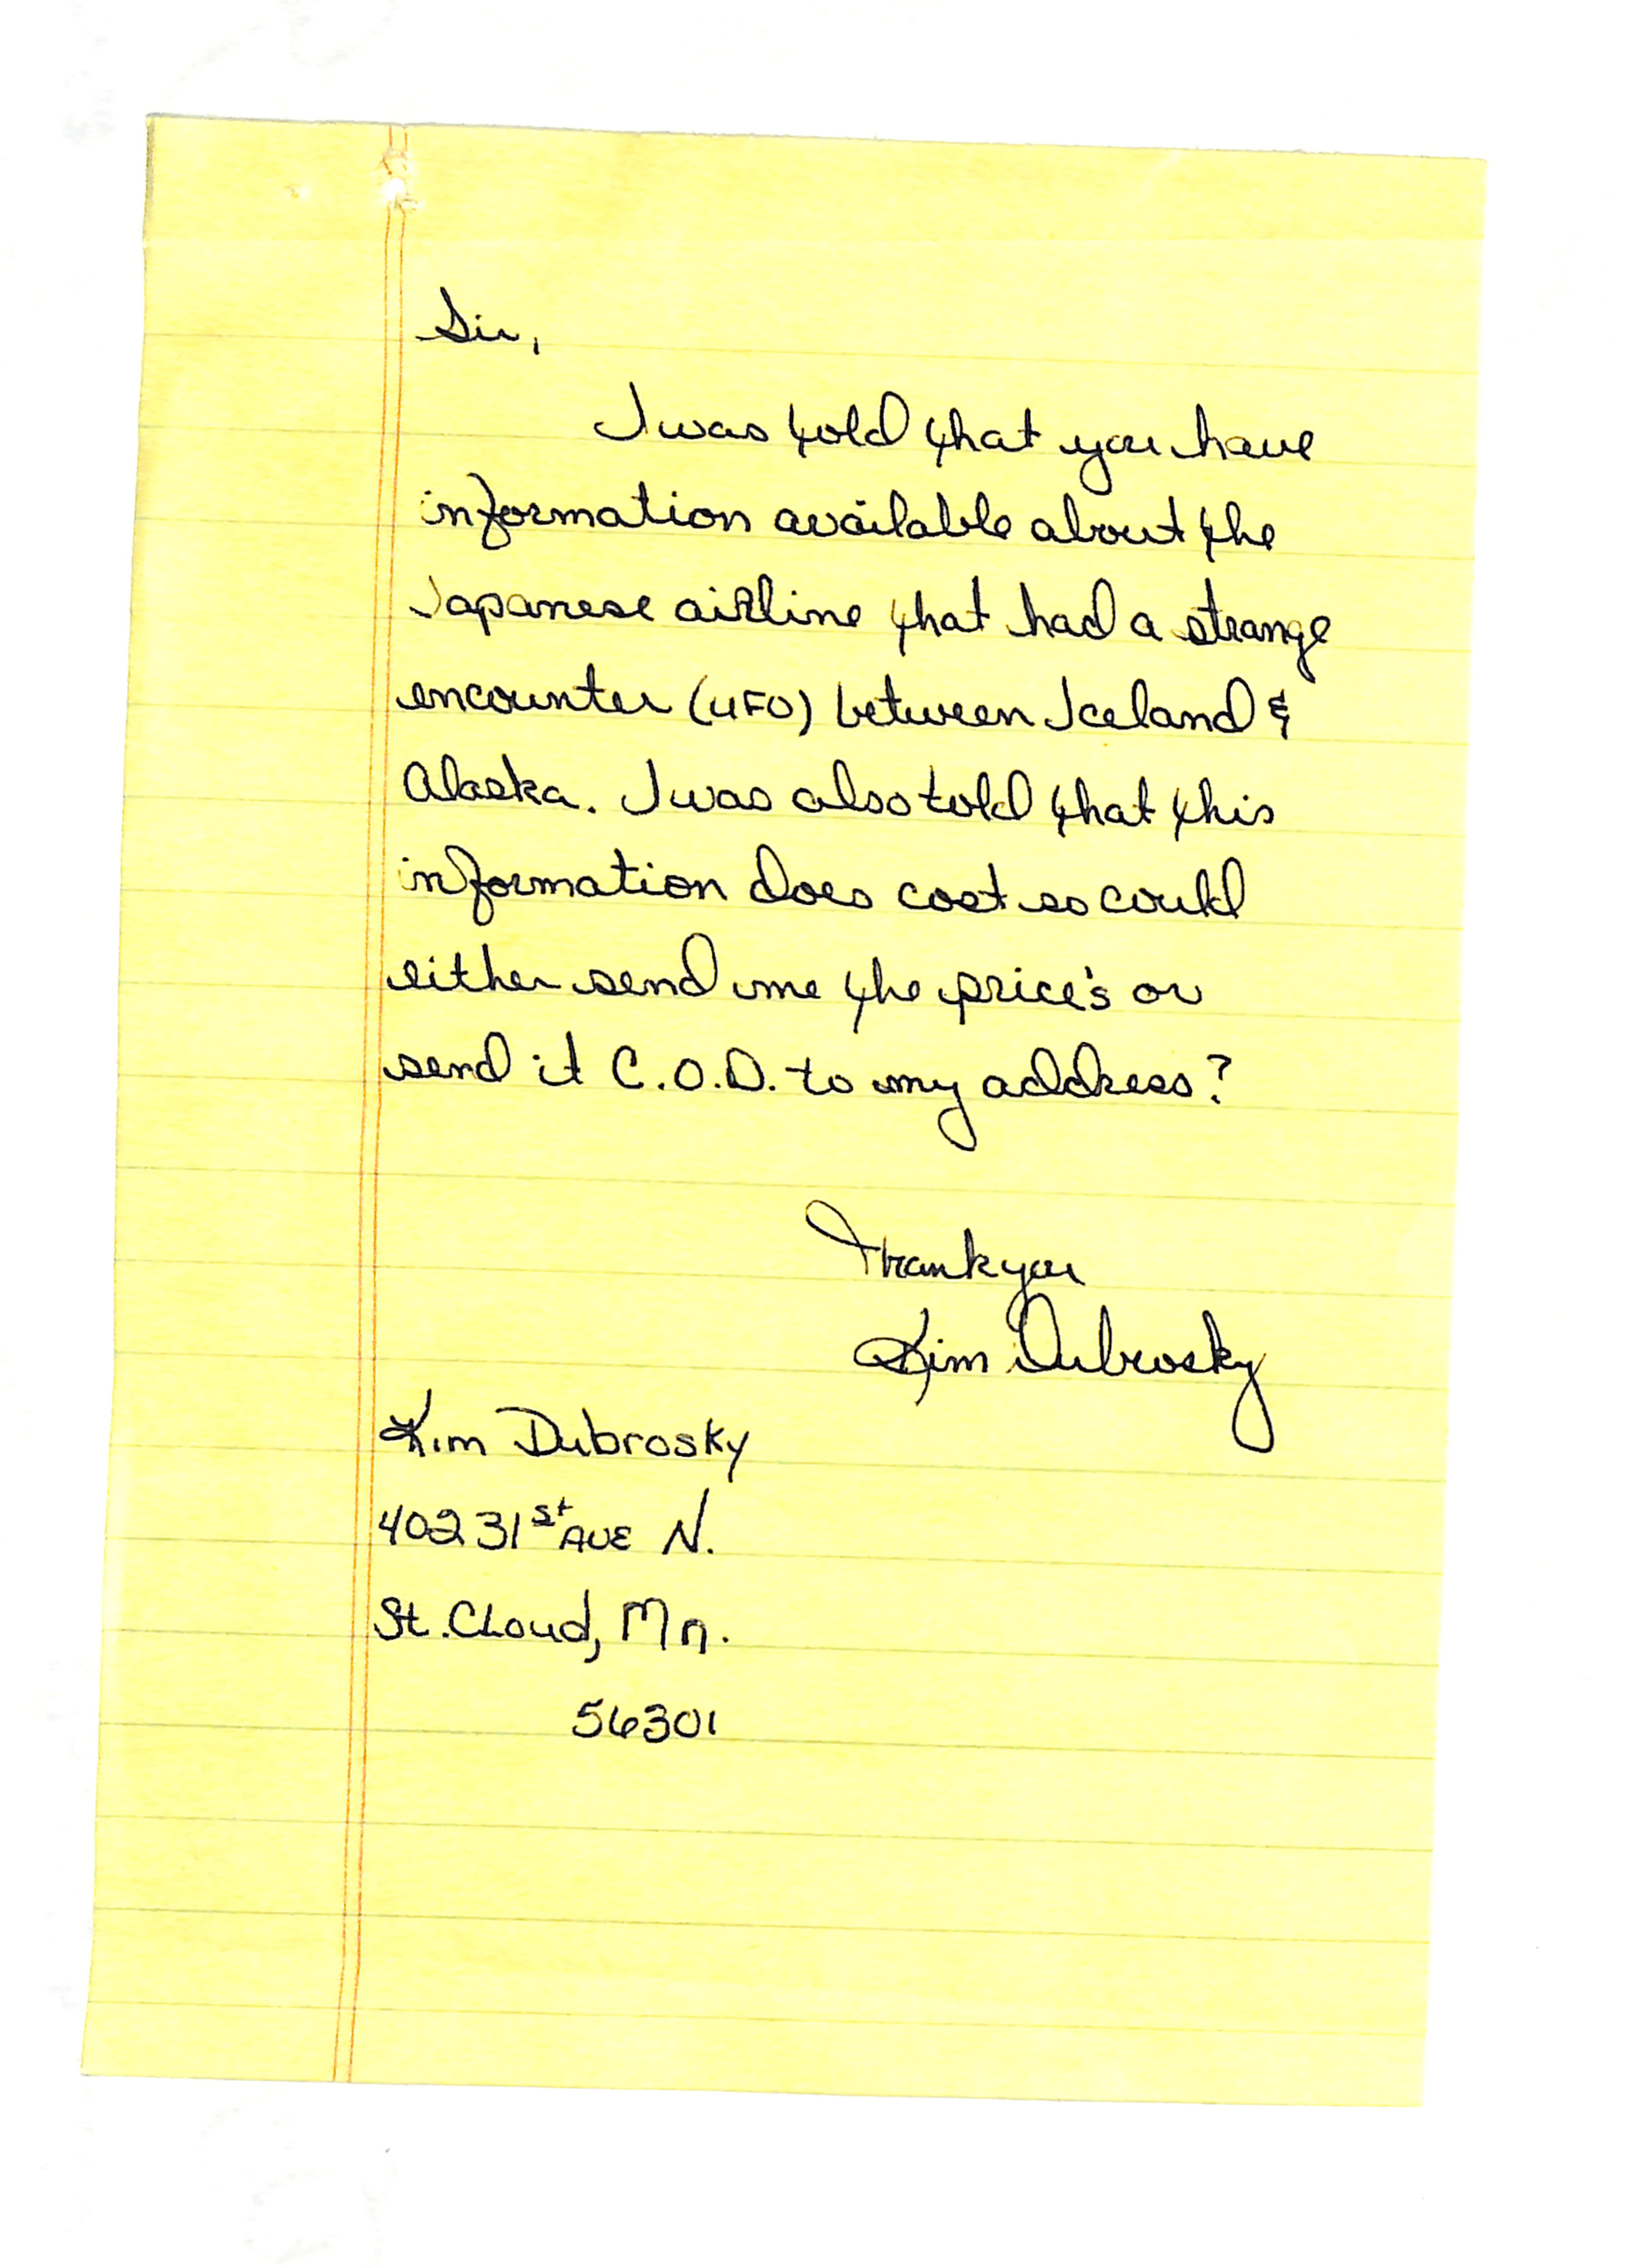 Sir,
I was told that you have
information available about the
Japanese airline that had a strange
encounter (UFO) between Iceland &
Alaska. I was also told that this
information does cost so could
either send me the price's or
send it C.O.D. to my address?
Thank you
Kim Dubrosky
Kim Dubrosky
402 31st AVE N.
St. Cloud, Mn.
56301